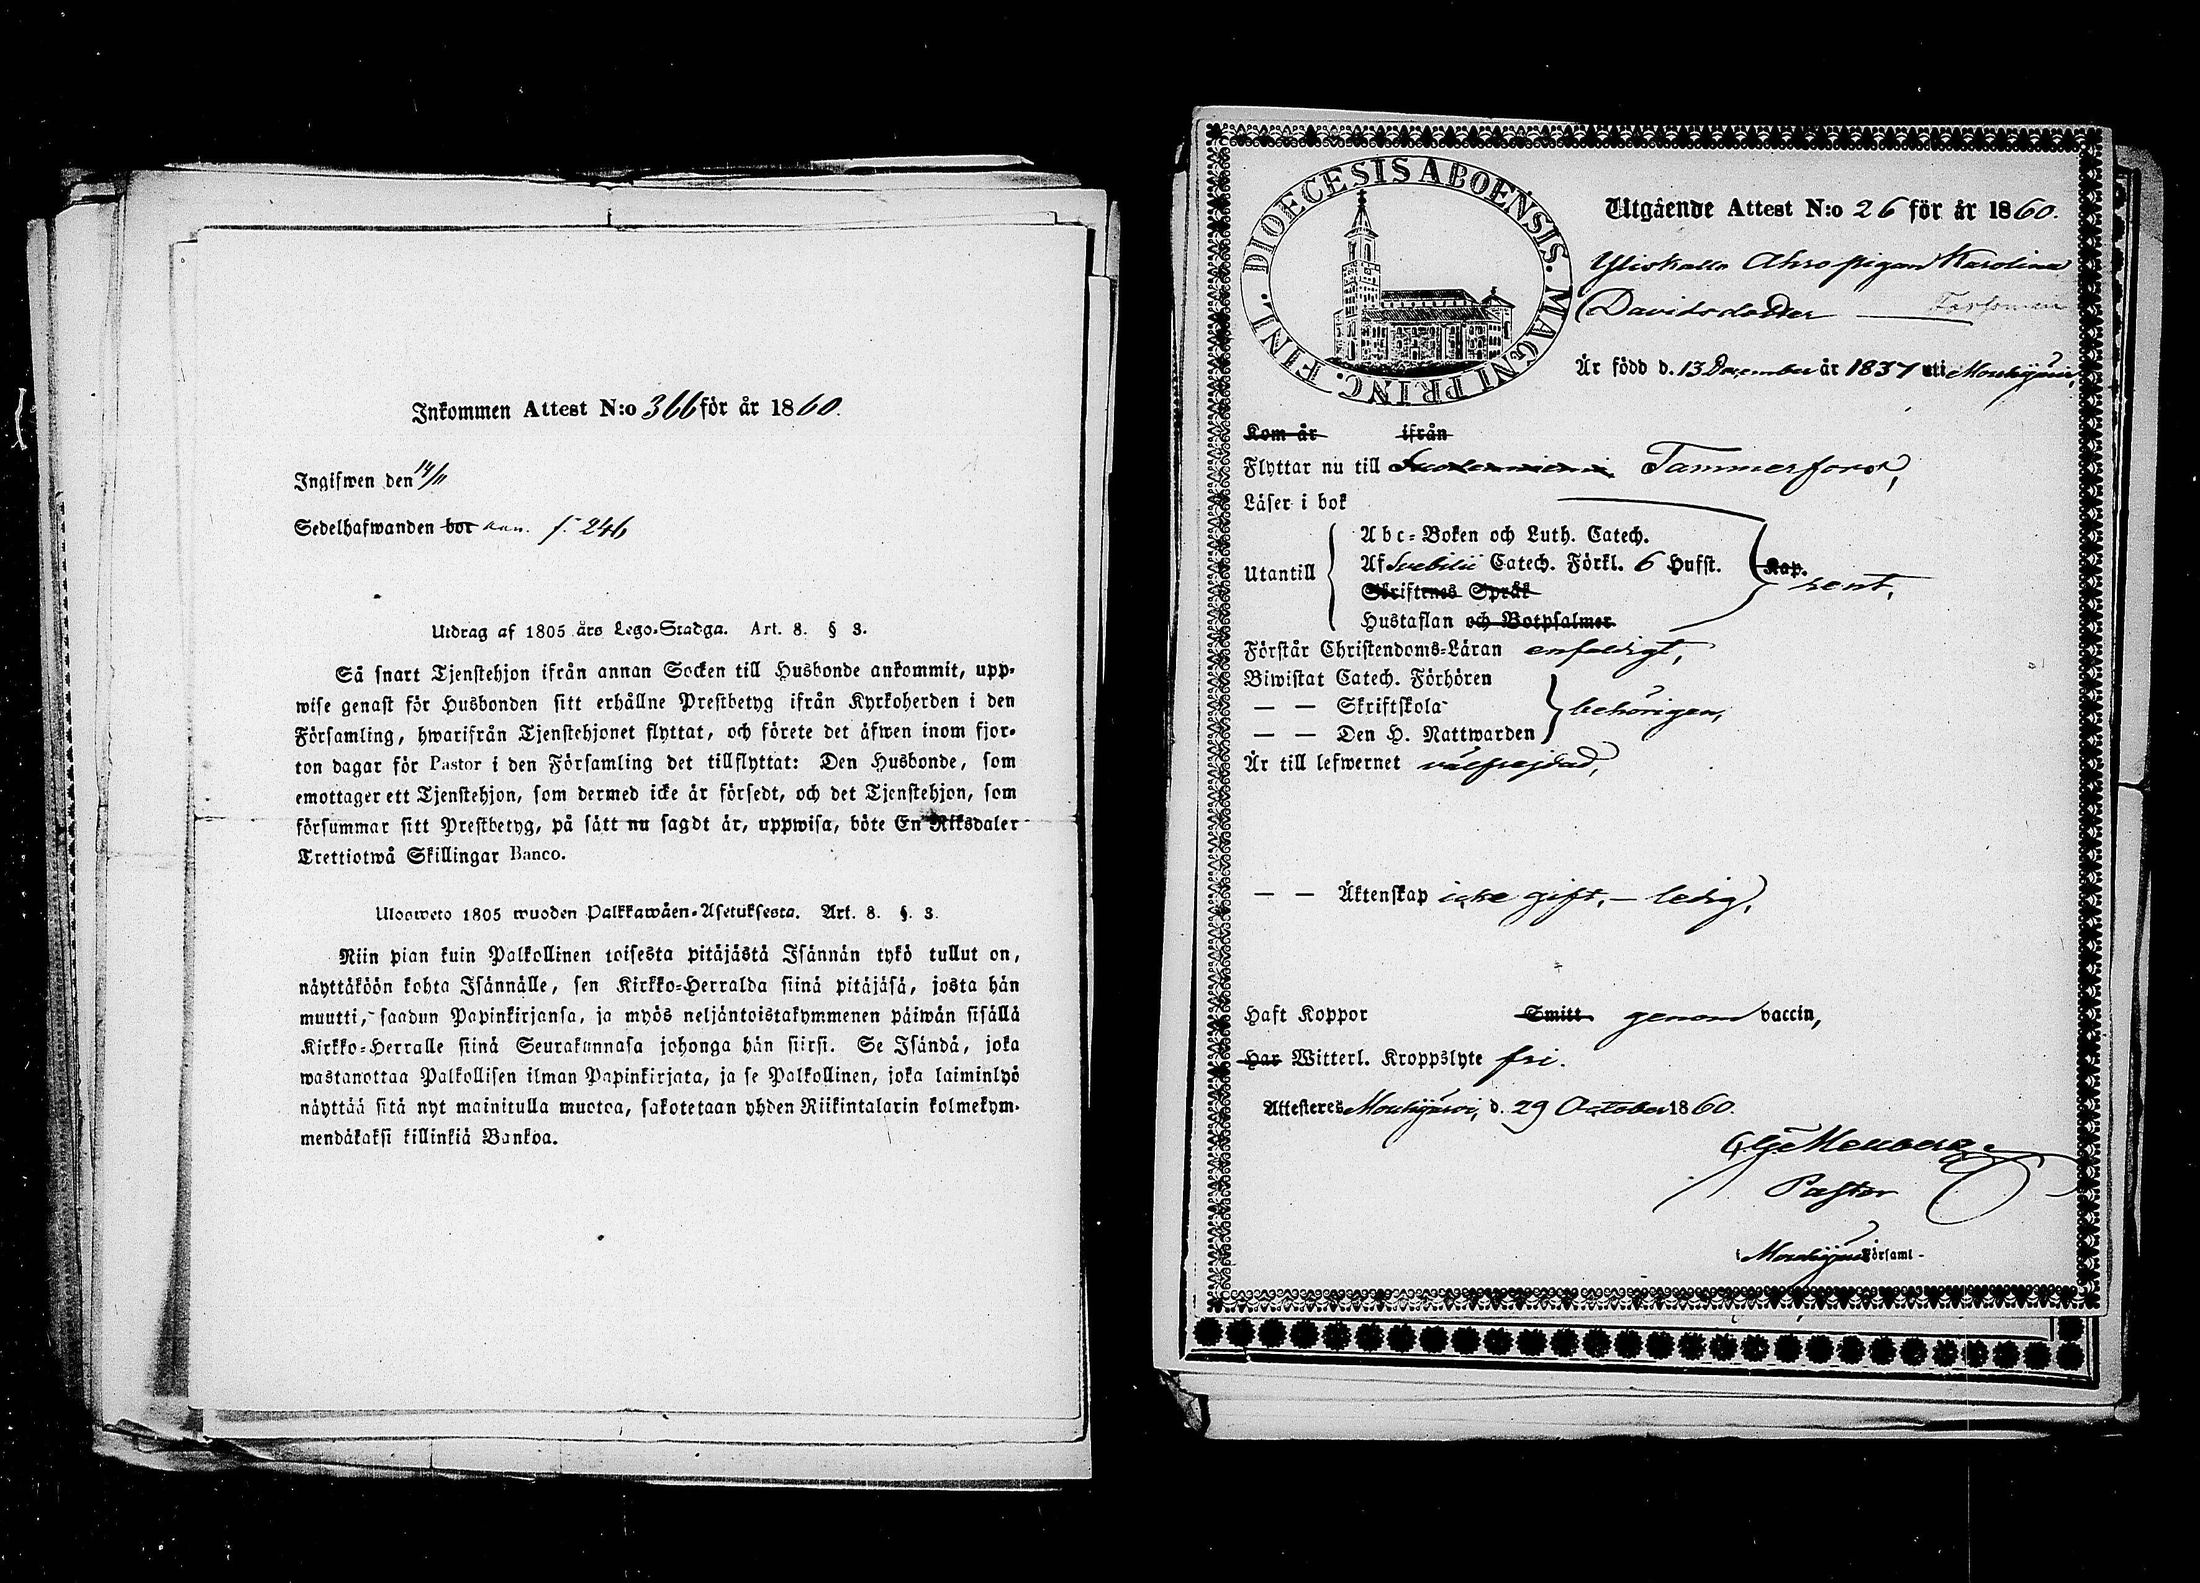 Inkommen Attest N:o 366 för år 1860.
Ingifwen den 14/11
Sedelhafwanden bor ann. f. 246
Utdrag af 1805 års Lego-Stadga. Art. 8. § 3.
Så snart Tjenstehjon ifrån annan Socken till Husbonde ankommit, upp-
wise genast för Husbonden sitt erhållne Prestbetyg ifrån Kyrkoherden i den
Församling, hwarifrån Tjenstehjonet flyttat, och förete det äfwen inom fjor-
ton dagar för Pastor i den Församling det tillflyttat: Den Husbonde, som
emottager ett Tjenstehjon, som dermed icke är försedt, och det Tjenstehjon, som
försummar sitt Prestbetyg, på sätt nu sagdt är, uppwisa, böte En Riksdaler
Trettiotwå Skillingar Banco.
Ulosweto 1805 wuoden Palkkawäen-Asetuksesta. Art. 8. §. 3.
Niin pian kuin Palkollinen toisesta pitäjästä Isännän tykö tullut on,
näyttäköön kohta Isännälle, sen Kirkko-Herralda siinä pitäjäsä, josta hän
muutti, saadun Papinkirjansa, ja myös neljäntoistakymmenen päiwän sisällä
Kirkko-Herralle siinä Seurakunnasa johonga hän siirsi. Se Isändä, joka
wastanottaa Palkollisen ilman Papinkirjata, ja se Palkollinen, joka laiminlyö
näyttää sitä nyt mainitulla muotoa, sakotetaan yhden Riikintalarin kolmekym-
mendäkaksi killinkiä Bankoa.
FINL. DIOECESIS ABOENSIS. MAGNI PRINC.
Utgående Attest N:o 26 för år 1860.
Pigan Karolina
Davidsdotter
Är född d. 13 December år 1837 uti Mouhijärvi,
Kom år ifrån
Flyttar nu till Tammerfors,
Läser i bok
Utantill
Abc-Boken och Luth. Catech.
Af Svebilii Catech. Förkl. 6 Hufst. Kap.
rent,
Skriftenes Språk
Hustaflan och Botpsalmer.
Förstår Christendoms-Läran enfaldigt,
Biwistat Catech. Förhören
— — Skriftskola
behörigen,
— — Den H. Nattwarden
Är till lefwernet välfrejdad,
— — Äktenskap icke gift, – ledig,
Haft Koppor Smitt. genom vaccin,
Har Witterl. Kroppslyte fri.
Attesteres Mouhijärvi, d. 29 October 1860.
Pastor
i Mouhijärvi Församl-